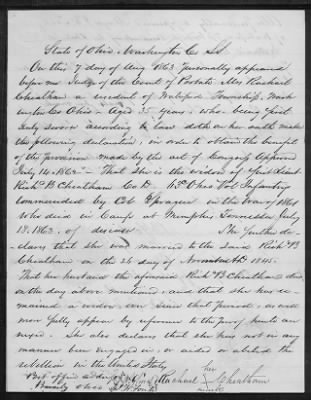 State of Ohio, Washington Co SS
On this 7 day of Aug 1863 Personally appeared
before me Judge of the Court of Probate Mrs Rachael
Cheatham a resident of Township, Wash
ington Co Ohio - Aged 35 years, who being first
duly sworn according to law doth on her oath make
the following declaration, in order to obtain the benefit
of the provision made by the act of Congress Approved
July 14. 1862 - That she is the widow of Lieut
Rich'd B Cheatham Co D. 63 Ohio Vol Infantry
Commanded by Col Sprague in the war of 1861
who died in Camp at Memphis Tennessee July
1863, of disease She further de-
clares that she was married to the said Rich'd B
Cheatham on the 26 day of November AD 1845.
That her husband the aforesaid Rich'd B Cheatham died
on the day above mentioned, and that she has re-
mained a widow ever since that period, as will
more fully appear by reference to the proof hereto an
nexed. She also declares that she has not in any
manner been engaged in, or aided or abetted the
rebellion in the United States,
Post office address her
Ohio Rachael X Cheatham
mark